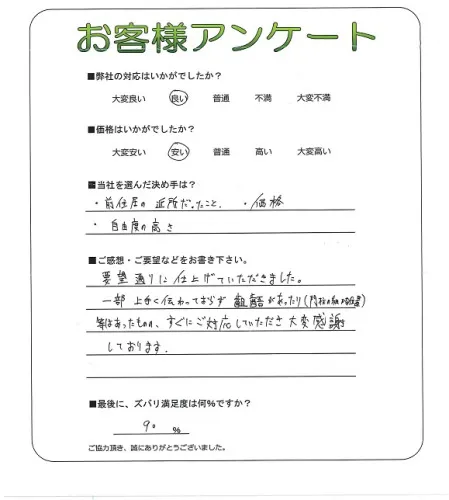 お客様アンケート
■弊社の対応はいかがでしたか？
大変良い 良い 普通 不満 大変不満
■価格はいかがでしたか？
大変安い 安い 普通 高い 大変高い
■当社を選んだ決め手は？
・前住居の近所だったこと、 ・価格
・自由度の高さ
■ご感想・ご要望などをお書き下さい。
要望通りに仕上げていただきました。
一部上手く伝わっておらず齟齬があったり(
等はあったものの、すぐにご対応していただき大変感謝
しております．
■最後に、ズバリ満足度は何％ですか？
90 ％
ご協力頂き、誠にありがとうございました。